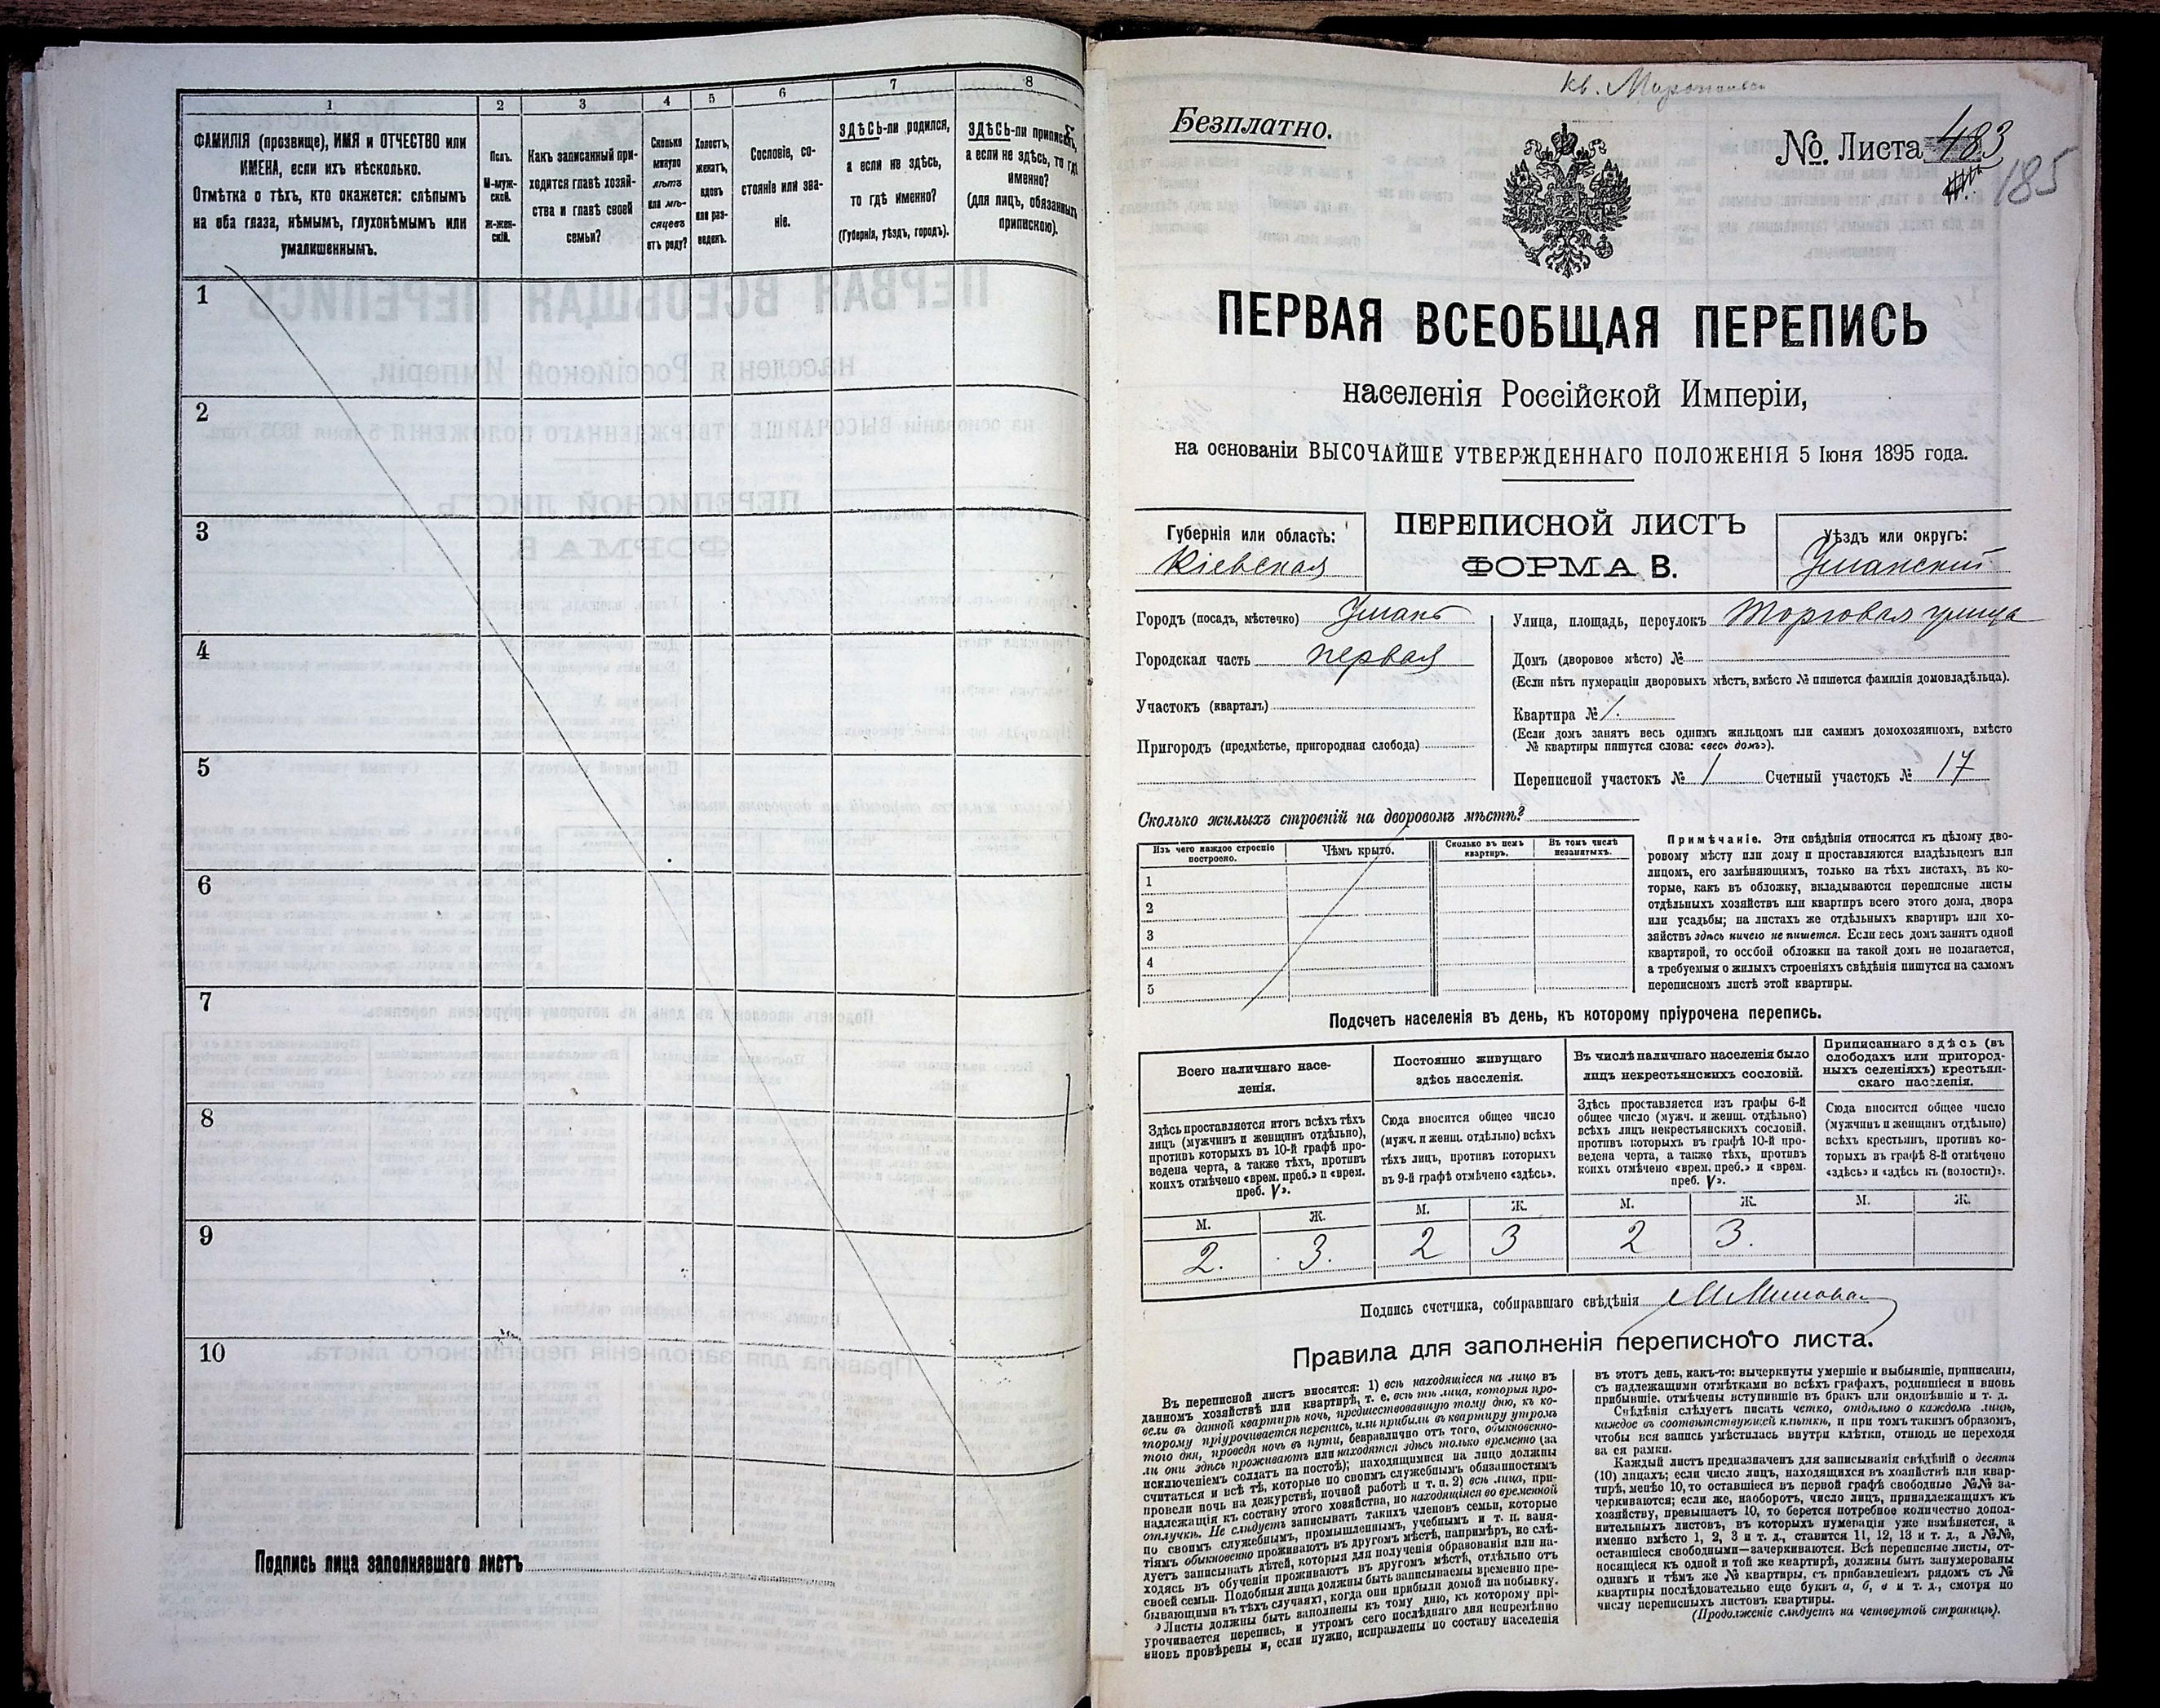 1
2
3
4
5
6
7
8
ФАМИЛІЯ (прозвище), ИМЯ и ОТЧЕСТВО или
ИМЕНА, если ихъ нѣсколько.
Отмѣтка о тѣхъ, кто окажется: слѣпымъ
на оба глаза, нѣмымъ, глухонѣмымъ или
умалишеннымъ.
Полъ.
М-муж-
ской.
Ж-жен-
скій.
Какъ записанный при-
ходится главѣ хозяй-
ства и главѣ своей
семьи?
Сколько
минуло
лѣтъ
или мѣ-
сяцевъ
отъ роду?
Холостъ,
женатъ,
вдовъ
или раз-
веденъ.
Сословіе, со-
стояніе или зва-
ніе.
ЗДѢСЬ-ли родился,
а если не здѣсь,
то гдѣ именно?
(Губернія, уѣздъ, городъ).
ЗДѢСЬ-ли приписанъ,
а если не здѣсь, то гдѣ
именно?
(для лицъ, обязанныхъ
припискою).
1
2
3
4
5
6
7
8
9
10
Подпись лица заполнявшаго листъ
Безплатно.
№ Листа 483
185
ПЕРВАЯ ВСЕОБЩАЯ ПЕРЕПИСЬ
населенія Россійской Имперіи,
на основаніи ВЫСОЧАЙШЕ УТВЕРЖДЕННАГО ПОЛОЖЕНІЯ 5 Іюня 1895 года.
Губернія или область:
Кіевская
ПЕРЕПИСНОЙ ЛИСТЪ
ФОРМА В.
Уѣздъ или округъ:
Уманскій
Городъ (посадъ, мѣстечко) Умань
Городская часть первая
Участокъ (кварталъ)
Пригородъ (предмѣстье, пригородная слобода)
Улица, площадь, переулокъ Торговая улица
Домъ (дворовое мѣсто) №
(Если нѣтъ нумераціи дворовыхъ мѣстъ, вмѣсто № пишется фамилія домовладѣльца).
Квартира № 1.
(Если домъ занятъ весь однимъ жильцомъ или самимъ домохозяиномъ, вмѣсто
№ квартиры пишутся слова: «весь домъ»).
Переписной участокъ № 1 Счетный участокъ № 17
Сколько жилыхъ строеній на дворовомъ мѣстѣ?
Изъ чего каждое строеніе
построено.
Чѣмъ крыто.
Сколько въ немъ
квартиръ.
Въ томъ числѣ
незанятыхъ.
1
2
3
4
5
Примѣчаніе. Эти свѣдѣнія относятся къ цѣлому дво-
ровому мѣсту или дому и проставляются владѣльцемъ или
лицомъ, его замѣняющимъ, только на тѣхъ листахъ, въ ко-
торые, какъ въ обложку, вкладываются переписные листы
отдѣльныхъ хозяйствъ или квартиръ всего этого дома, двора
или усадьбы; на листахъ же отдѣльныхъ квартиръ или хо-
зяйствъ здѣсь ничего не пишется. Если весь домъ занятъ одной
квартирой, то особой обложки на такой домъ не полагается,
а требуемыя о жилыхъ строеніяхъ свѣдѣнія пишутся на самомъ
переписномъ листѣ этой квартиры.
Подсчетъ населенія въ день, къ которому пріурочена перепись.
Всего наличнаго насе-
ленія.
Постоянно живущаго
здѣсь населенія.
Въ числѣ наличнаго населенія было
лицъ некрестьянскихъ сословій.
Приписаннаго здѣсь (въ
слободахъ или пригород-
ныхъ селеніяхъ) крестьян-
скаго населенія.
Здѣсь проставляется итогъ всѣхъ тѣхъ
лицъ (мужчинъ и женщинъ отдѣльно),
противъ которыхъ въ 10-й графѣ про-
ведена черта, а также тѣхъ, противъ
коихъ отмѣчено «врем. преб.» и «врем.
преб. V».
Сюда вносится общее число
(мужч. и женщ. отдѣльно) всѣхъ
тѣхъ лицъ, противъ которыхъ
въ 9-й графѣ отмѣчено «здѣсь».
Здѣсь проставляется изъ графы 6-й
общее число (мужч. и женщ. отдѣльно)
всѣхъ лицъ некрестьянскихъ сословій,
противъ которыхъ въ графѣ 10-й про-
ведена черта, а также тѣхъ, противъ
коихъ отмѣчено «врем. преб.» и «врем.
преб. V».
Сюда вносится общее число
(мужчинъ и женщинъ отдѣльно)
всѣхъ крестьянъ, противъ ко-
торыхъ въ графѣ 8-й отмѣчено
«здѣсь» и «здѣсь къ (волости)».
М. Ж. М. Ж. М. Ж. М. Ж.
2. 3. 2 3 2 3.
Подпись счетчика, собиравшаго свѣдѣнія
Правила для заполненія переписного листа.
Въ переписной листъ вносятся: 1) всѣ находящіеся на лицо въ
данномъ хозяйствѣ или квартирѣ, т. е. всѣ тѣ лица, которыя про-
вели въ данной квартирѣ ночь, предшествовавшую тому дню, къ ко-
торому пріурочивается перепись, или прибыли въ квартиру утромъ
того дня, проведя ночь въ пути, безразлично отъ того, обыкновенно-
ли они здѣсь проживаютъ или находятся здѣсь только временно (за
исключеніемъ солдатъ на постоѣ); находящимися на лицо должны
считаться и всѣ тѣ, которые по своимъ служебнымъ обязанностямъ
провели ночь на дежурствѣ, ночной работѣ и т. п. 2) всѣ лица, при-
надлежащія къ составу этого хозяйства, но находящіяся во временной
отлучкѣ. Не слѣдуетъ записывать такихъ членовъ семьи, которые
по своимъ служебнымъ, промышленнымъ, учебнымъ и т. п. заня-
тіямъ обыкновенно проживаютъ въ другомъ мѣстѣ, напримѣръ, не слѣ-
дуетъ записывать дѣтей, которыя для полученія образованія или на-
ходясь въ обученіи проживаютъ въ другомъ мѣстѣ, отдѣльно отъ
своей семьи. Подобныя лица должны быть записываемы временно пре-
бывающими въ тѣхъ случаяхъ, когда они прибыли домой на побывку.
Листы должны быть заполнены къ тому дню, къ которому прі-
урочивается перепись, и утромъ сего послѣдняго дня непремѣнно
вновь провѣрены и, если нужно, исправлены по составу населенія
въ этотъ день, какъ-то: вычеркнуты умершіе и выбывшіе, приписаны,
съ надлежащими отмѣтками во всѣхъ графахъ, родившіеся и вновь
прибывшіе, отмѣчены вступившіе въ бракъ или овдовѣвшіе и т. д.
Свѣдѣнія слѣдуетъ писать четко, отдѣльно о каждомъ лицѣ,
каждое въ соотвѣтствующей клѣткѣ, и при томъ такимъ образомъ,
чтобы вся запись умѣстилась внутри клѣтки, отнюдь не переходя
за ея рамки.
Каждый листъ предназначенъ для записыванія свѣдѣній о десяти
(10) лицахъ; если число лицъ, находящихся въ хозяйствѣ или квар-
тирѣ, менѣе 10, то оставшіеся въ первой графѣ свободные №№ за-
черкиваются; если же, наоборотъ, число лицъ, принадлежащихъ къ
хозяйству, превышаетъ 10, то берется потребное количество допол-
нительныхъ листовъ, въ которыхъ нумерація уже измѣняется, а
именно вмѣсто 1, 2, 3 и т. д., ставится 11, 12, 13 и т. д., а №№,
оставшіеся свободными—зачеркиваются. Всѣ переписные листы, от-
носящіеся къ одной и той же квартирѣ, должны быть занумерованы
однимъ и тѣмъ же № квартиры, съ прибавленіемъ рядомъ съ №
квартиры послѣдовательно еще буквъ а, б, в и т. д., смотря по
числу переписныхъ листовъ квартиры.
(Продолженіе слѣдуетъ на четвертой страницѣ).